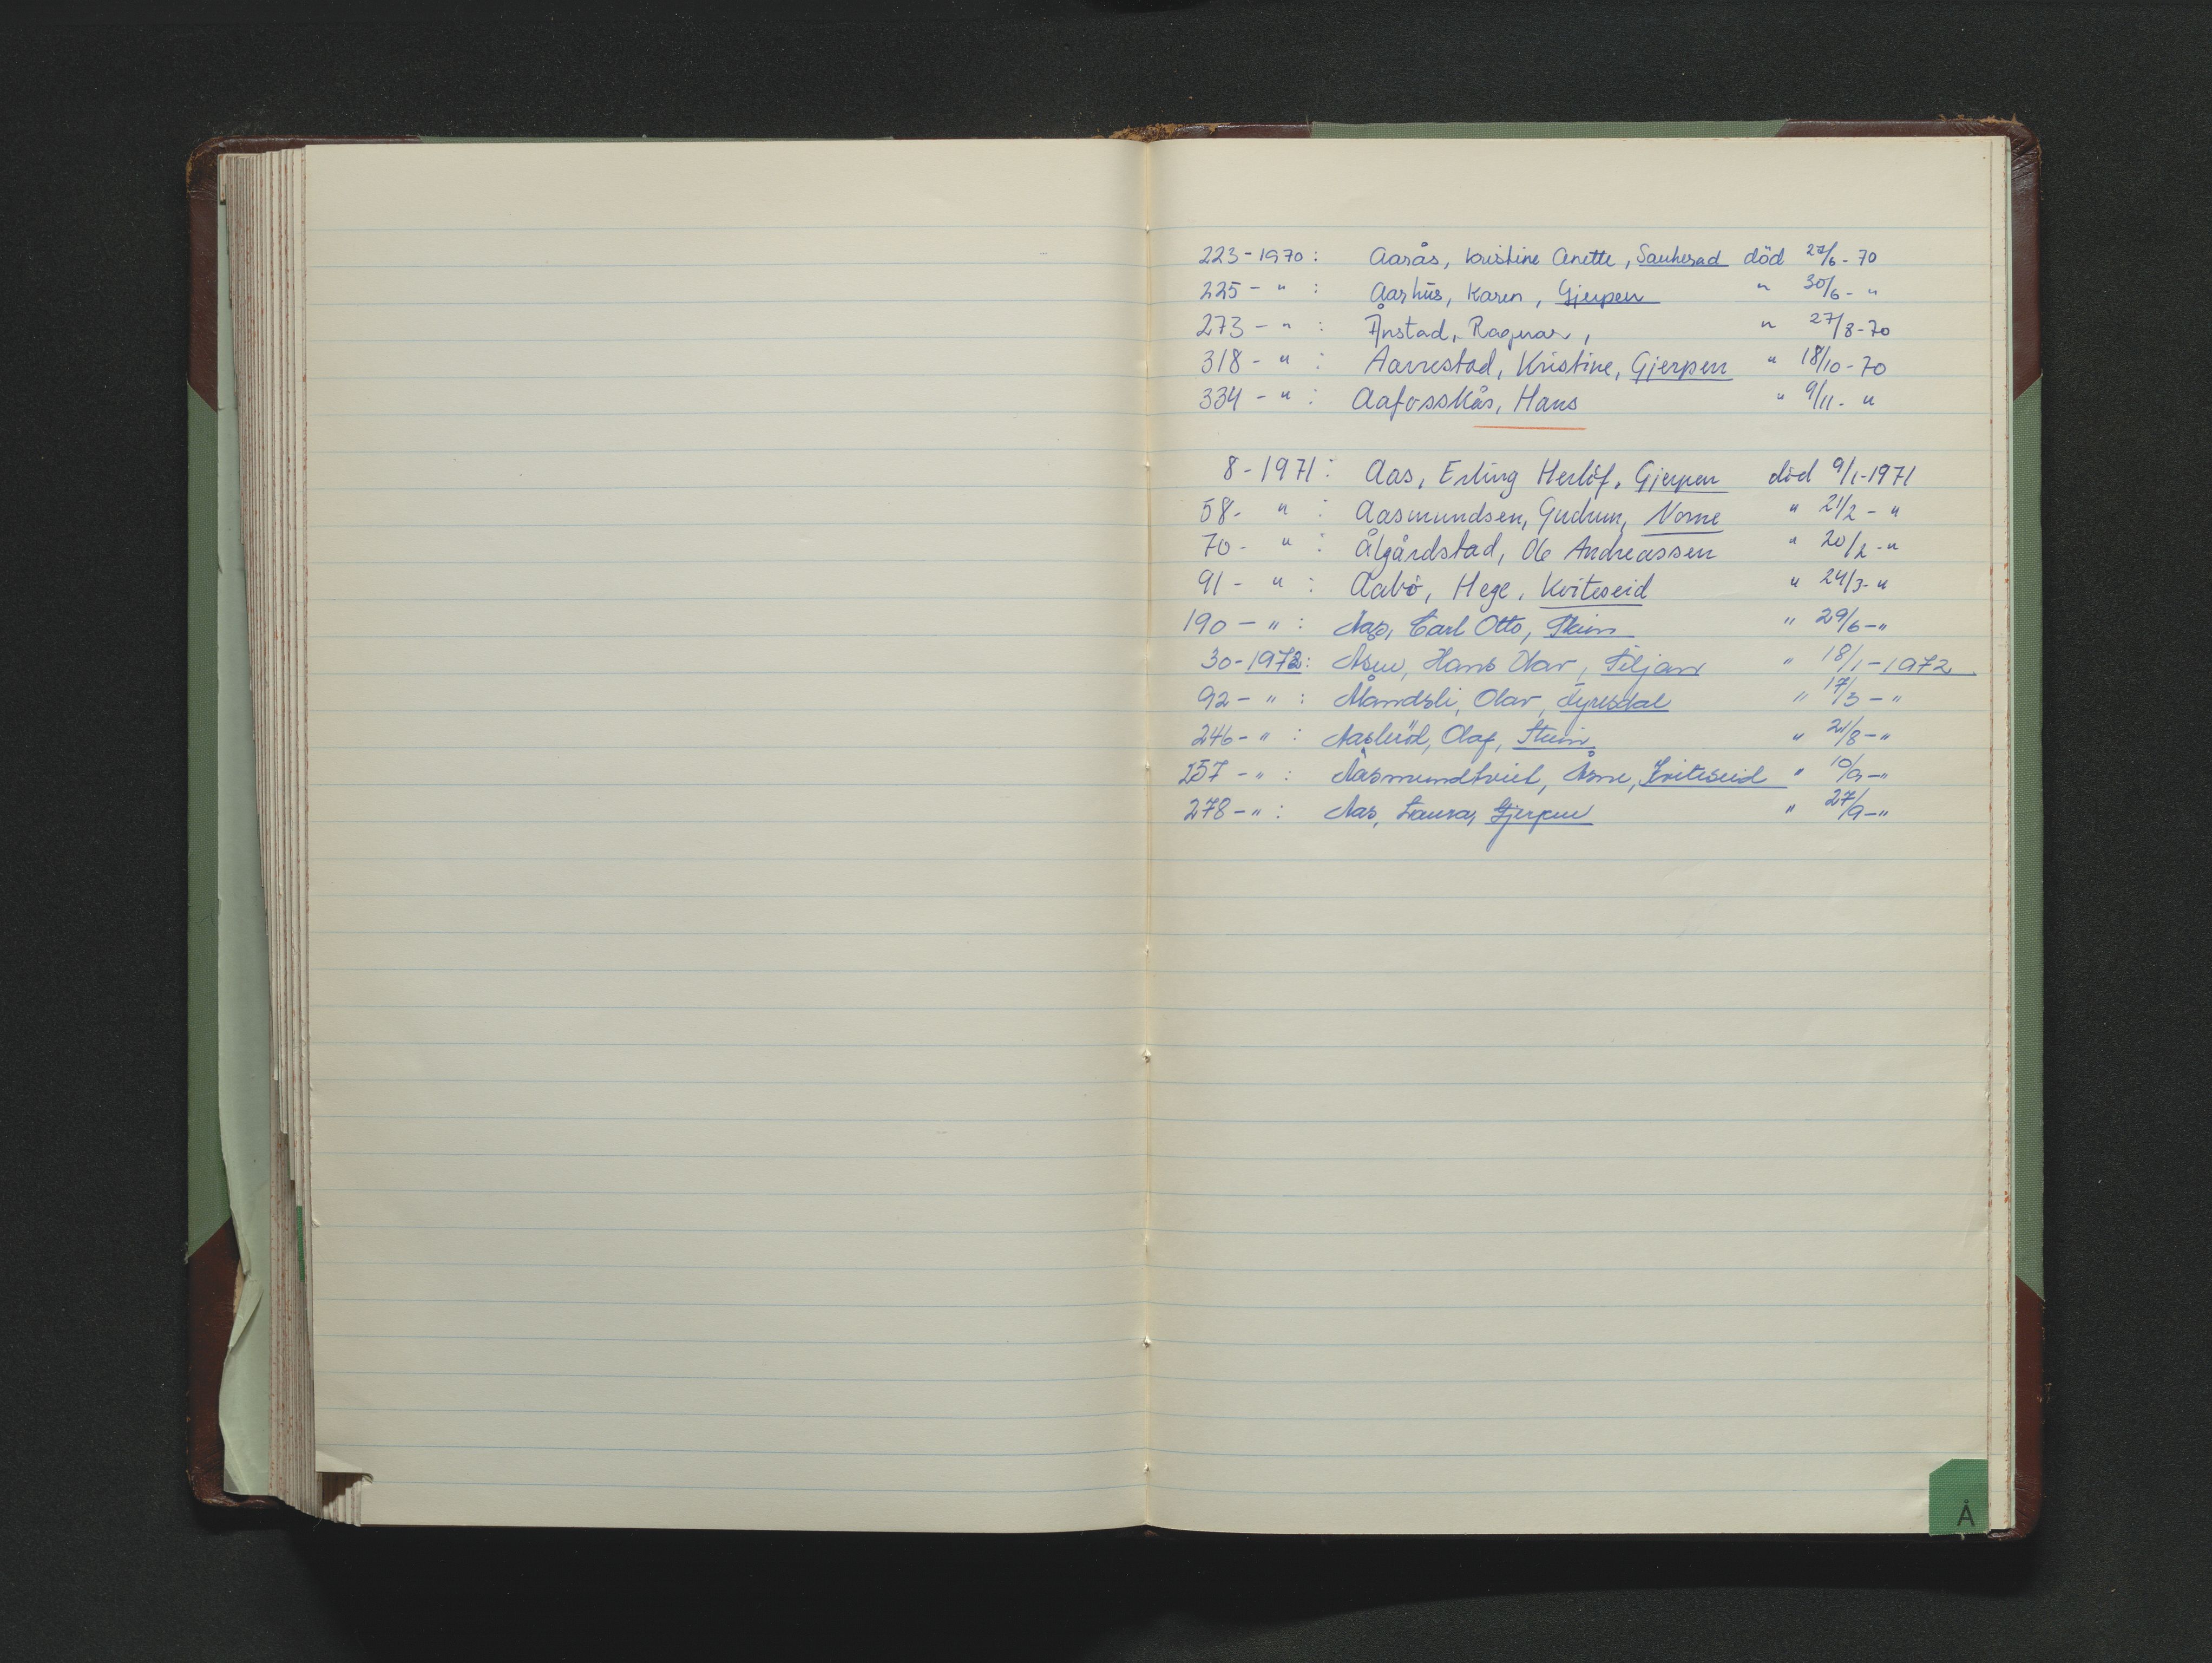 223-1970: Aarås, Kristine Anette, Sauherad död 27/6-70
225 - " : Aarhus, Karen, Gjerpen " 30/6- "
273 - " : Ånstad, Ragnar, " 27/8-70
318 - " : Aarrestad, Kristine, Gjerpen " 18/10-70
334 - " : Aafosskås, Hans " 9/11- "
8-1971: Aas, Erling Herlöf, Gjerpen död 9/1-1971
58- " : Aasmundsen, Gudrun, " 21/2 - "
70- " : Ålgårdstad, Ole Andreassen " 20/2 - "
91- " : Aabö, Hege, Kviteseid " 24/3- "
190 - " : Aas, Carl Otto, Skien " 29/6-"
30-1972: Hans Olav, Siljan " 18/1-1972
92 - " : Åmdsli, Olav, Fyresdal " 17/3 - "
246 - " : Olaf, Skien " 21/8-"
257 - " : Aasmundtveit, Åsne, Kviteseid " 10/9-"
278 - " : Aas, Laura, Gjerpen " 27/9-"
Å